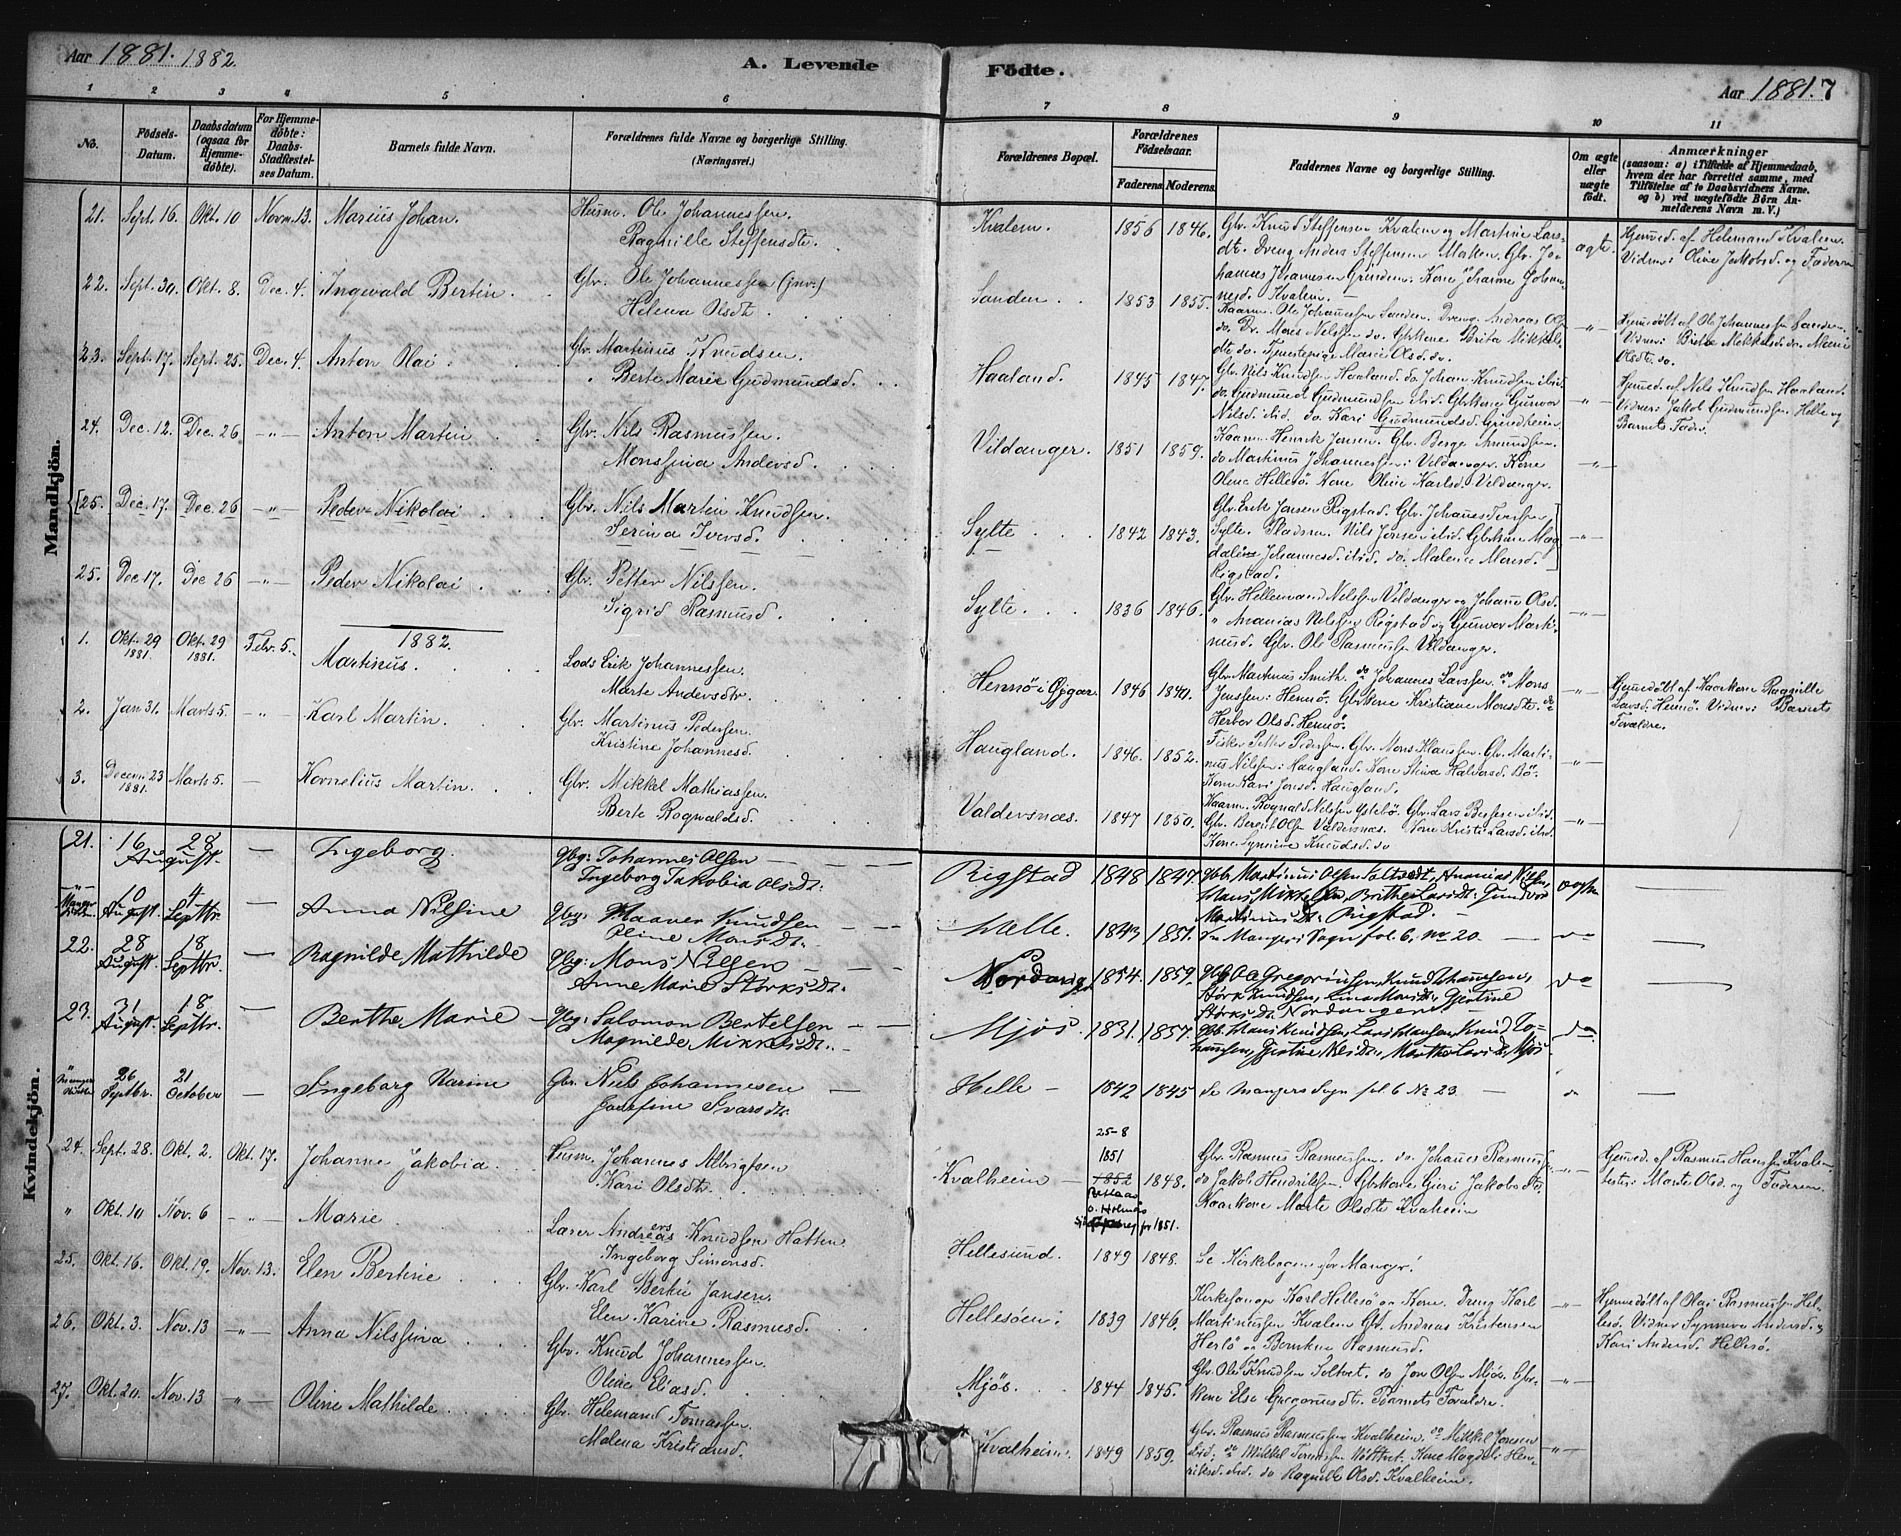 Aar 1881. 1882.
A. Levende
Födte.
Aar 1881. 7
1 2 3 4 5 6
7 8 9 10 11
No.
Födsels-Datum.
Daabsdatum (ogsaa for Hjemmedöbte).
For Hjemmedöbte: Daabs-Stadfæstelses Datum.
Barnets fulde Navn.
Forældrenes fulde Navne og borgerlige Stilling.
(Næringsvei.)
Forældrenes Bopæl.
Forældrenes Födselsaar.
Faderens. Moderens.
Faddernes Navne og borgerlige Stilling.
Om ægte eller uægte födt.
Anmærkninger
(saasom: a) i Tilfælde af Hjemmedaab, hvem der har forrettet samme, med Tilföielse af to Daabsvidners Navne. og b) ved uægtefödte Börn Anmelderens Navn m. V.)
Mandkjön.
21. Sept. 16. Okt. 10 Novm. 13. Marius Johan.
Husm. Ole Johannessen.
Ragnille Steffensdtr.
Kvalem. 1856 1846.
Gbr. Knud Steffensen Kvalem og Martine Larsdtr. Dreng Anders Steffensen
ægte.
Hjemed. af Helemand Kvalem.
Vidner: Oline Jakobsd. og Faderen
22. Sept. 30. Okt. 8. Dec. 4. Ingvald Bertin.
Gbr. Ole Johannessen (jnr.)
Helena Olsdtr.
Sanden. 1853 1855.
Kaarm. Ole Johannessen Sanden. Dreng Andreas Ols
-"-
Hjemedöbt af Ole Johannessen Sanden.
23. Sept. 17. Sept. 25. Dec. 4. Anton Olai.
Gbr. Martinus Knudsen.
" Berte Marie Gudmundsd.
Haaland. 1845 1847.
Gbr. Nils Knudsen Haaland. do. Johan Knudsen ibid.
do. Gudmund Gudmundsen ibid. Gbrkone Gunvor
Nilsd. ibid. do. Kari Gudmundsd. Grindheim.
-"-
Hjemed. af Nils Knudsen Haaland.
Vidner: Jakob Gudmundsen Helle og
Barnets Fader.
24. Dec. 12. Dec. 26 -"- Anton Martin
Gbr. Nils Rasmussen.
Monssina Andersd.
Vildanger. 1851 1859.
Kaarm. Henrik Jensen. Gbr. Berge Amundsen.
do Martinus Johannessen i Vildanger. Kone
Olena Hellesö. Kone Oline Karlsd. Vildanger.
-"-
[25. Dec. 17. Dec. 26 -"- Peder Nikolai
Gbr. Nils Martin Knudsen.
Serina Iversd.
Sylte 1842 1843.
Gbr. Erik Jansen Rigstad. Gbr. Johannes Iversen
Sylte. Nils Jonsen ibid. Gbrkone Magdalene Johannesd. ibid. do. Malene Monsd.
Rigstad.]
-"-
25. Dec. 17. Dec. 26 -"- Peder Nikolai
Gbr. Petter Nilssen.
Sigrid Rasmusd.
Sylte. 1836 1846.
Gbr. Hellemand Nelssen Vildanger og Johanne Olsd.
" Ananias Nelssen Rigstad og Gunvor Martinusd. Gbr. Ole Rasmussen Vildanger.
-"-
1882.
1. Okt. 29 1881. Okt. 29 1881. Febr. 5. Martinus.
Lods Erik Johannessen.
Marte Andersdtr.
Hennö i Gjgar. 1846 1840.
Gbr. Martinus Smith. do Johannes Larssen. do Mons
Jenssen i Hennö. Gbrkone Kristiane Monsdtr. do
Herbor Olsd. Hennö.
-"-
Hjemedöbt af Kaarkone Ragnille
Larsd. Hennö. Vidner: Barnets
Forældre.
2. Jan. 31. Marts 5. -"- Karl Martin.
Gbr. Martinus Pedersen.
Kristine Johannesd.
Haugland. 1846. 1852.
Fisker Petter Pedersen. Gbr. Mons Hanssen. Gbr. Martinus Nilssen i Haugland. Kone Stina Haldorsd. Bö.
Kone Kari Jonsd. Haugland.
-"-
3. Decem. 23 1881. Marts 5. — Kornelius Martin.
Gbr. Mikkel Mathiassen.
Berte Rognvaldsd.
Valdersnæs. 1847 1850.
Kaarm. Rognald Nelssen Ystebö. Gbr. Lars Berssen ibid.
Gbr. Berent Olsen Valdersnæs. Kone Kristi Larsd. ibid.
Kone Synneve Knudsd. do
-"-
Kvindekjön.
21. 16 August. 28 — Ingeborg.
Gbg: Johannes Olsen
Ingeborg Jakobia Olsdt:
Rigstad 1848 1847.
Gbb. Martinus Olsen Soltvedt, Ananias Nilsen,
Hans Mikkelsen, Brithe Larsdt: Gundvor
Martinusdt: Rigstad.
ægte
Manger 10 August 4 Septbr. — Anna Nilsine
Gbg: Haaver Knudsen
Oline Monsdt:
Helle. 1843 1851.
Se Manger Sogn fol. 6, no 20.
do
22. 28 August. 18 Septbr. — Ragnilde Mathilde
Gbg: Mons Nilsen
Anne Marie Störksdt:
Nordanger 1854. 1859.
Gbb. Ola Gregoriussen, Knud Johannsen,
Störk Knudsen, Anna Monsdt:, Gjertine
Störksdt: Nordanger
do
23. 31 August 18 Septbr. — Berthe Marie
Gbg: Salomon Bertelsen
Magnilde Mikkelsdt:
Mjös. 1831. 1857.
Gbb. Hans Knudsen, Lars Hansen, Knud Johannsen, Gjertine Nilsdt:, Marthe Larsdt:, Mjös.
do
Manger 26 Septbr. 21 October — Ingeborg Karine
Gbr. Niels Johannesen
Josefine Ivarsdt:
Helle — 1842 1845
Se Mangers Sogn fol. 6 No 23.
do
24. Sept. 28. Okt. 2. Okt. 17. Johanne Jakobia.
Husm. Johannes Albrigtsen
Kari Olsdtr.
Kvalheim 25-8 1851 1852 1848.
Gbr. Rasmus Rasmussen. do. Johannes Rasmussen
do Jakob Hendriksen. Gbrkone Gjeri Jakobsdtr.
Kaarkone Marte Olsdtr. Kvalheim
-"-
Hjemed. af Rasmus Hansen Kvalem
Marte Olsd. og Faderen.
" Okt. 10 Nov. 6 -"- Marie
Lærer Andreas Knudsen Hatten
Ingeborg Simonsd.
Hellesund. 1849 1848.
Se Kirkebogen for Manger!
25. Okt. 16. Okt. 19. Nov. 13. Elen Bertine
Gbr. Karl Bertin Jansen.
Elen Karine Rasmusd.
Hellesöen 1839 1846.
Kirkesanger Karl Hellesö og Kone. Dreng Karl
Martinussen Kvalem. Gbr. Andreas Kristensen
Herlö
-"-
Hjemedöbt af Olai Rasmussen Hellesö. Vidner Synneva Andersd. og
Kari Andersd. Hellesö.
26. Okt. 3. Nov. 13 -"- Anna Nilssina
Gbr. Knud Johannessen.
Oline Eliasd.
Mjös. 1844 1845.
Gbr. Ole Knudsen Soltvet. do Jon Olsen Mjös. Gbrkone Else Gregoriusdtr. Barnets Forældre.
-"-
27. Okt. 20. Nov. 13 -"- Oline Mathilde
Gbr. Helemand Tomassen
Malena Kristiansd.
Kvalheim. 1849 1859.
Gbr. Rasmus Rasmussen Kvalheim. do Mikkel Jonsen
ibid. do Mikkel Tomassen Kone Magdeli Henriksd. ibid. do Ragnille Olsd. Kvalheim.
-"-